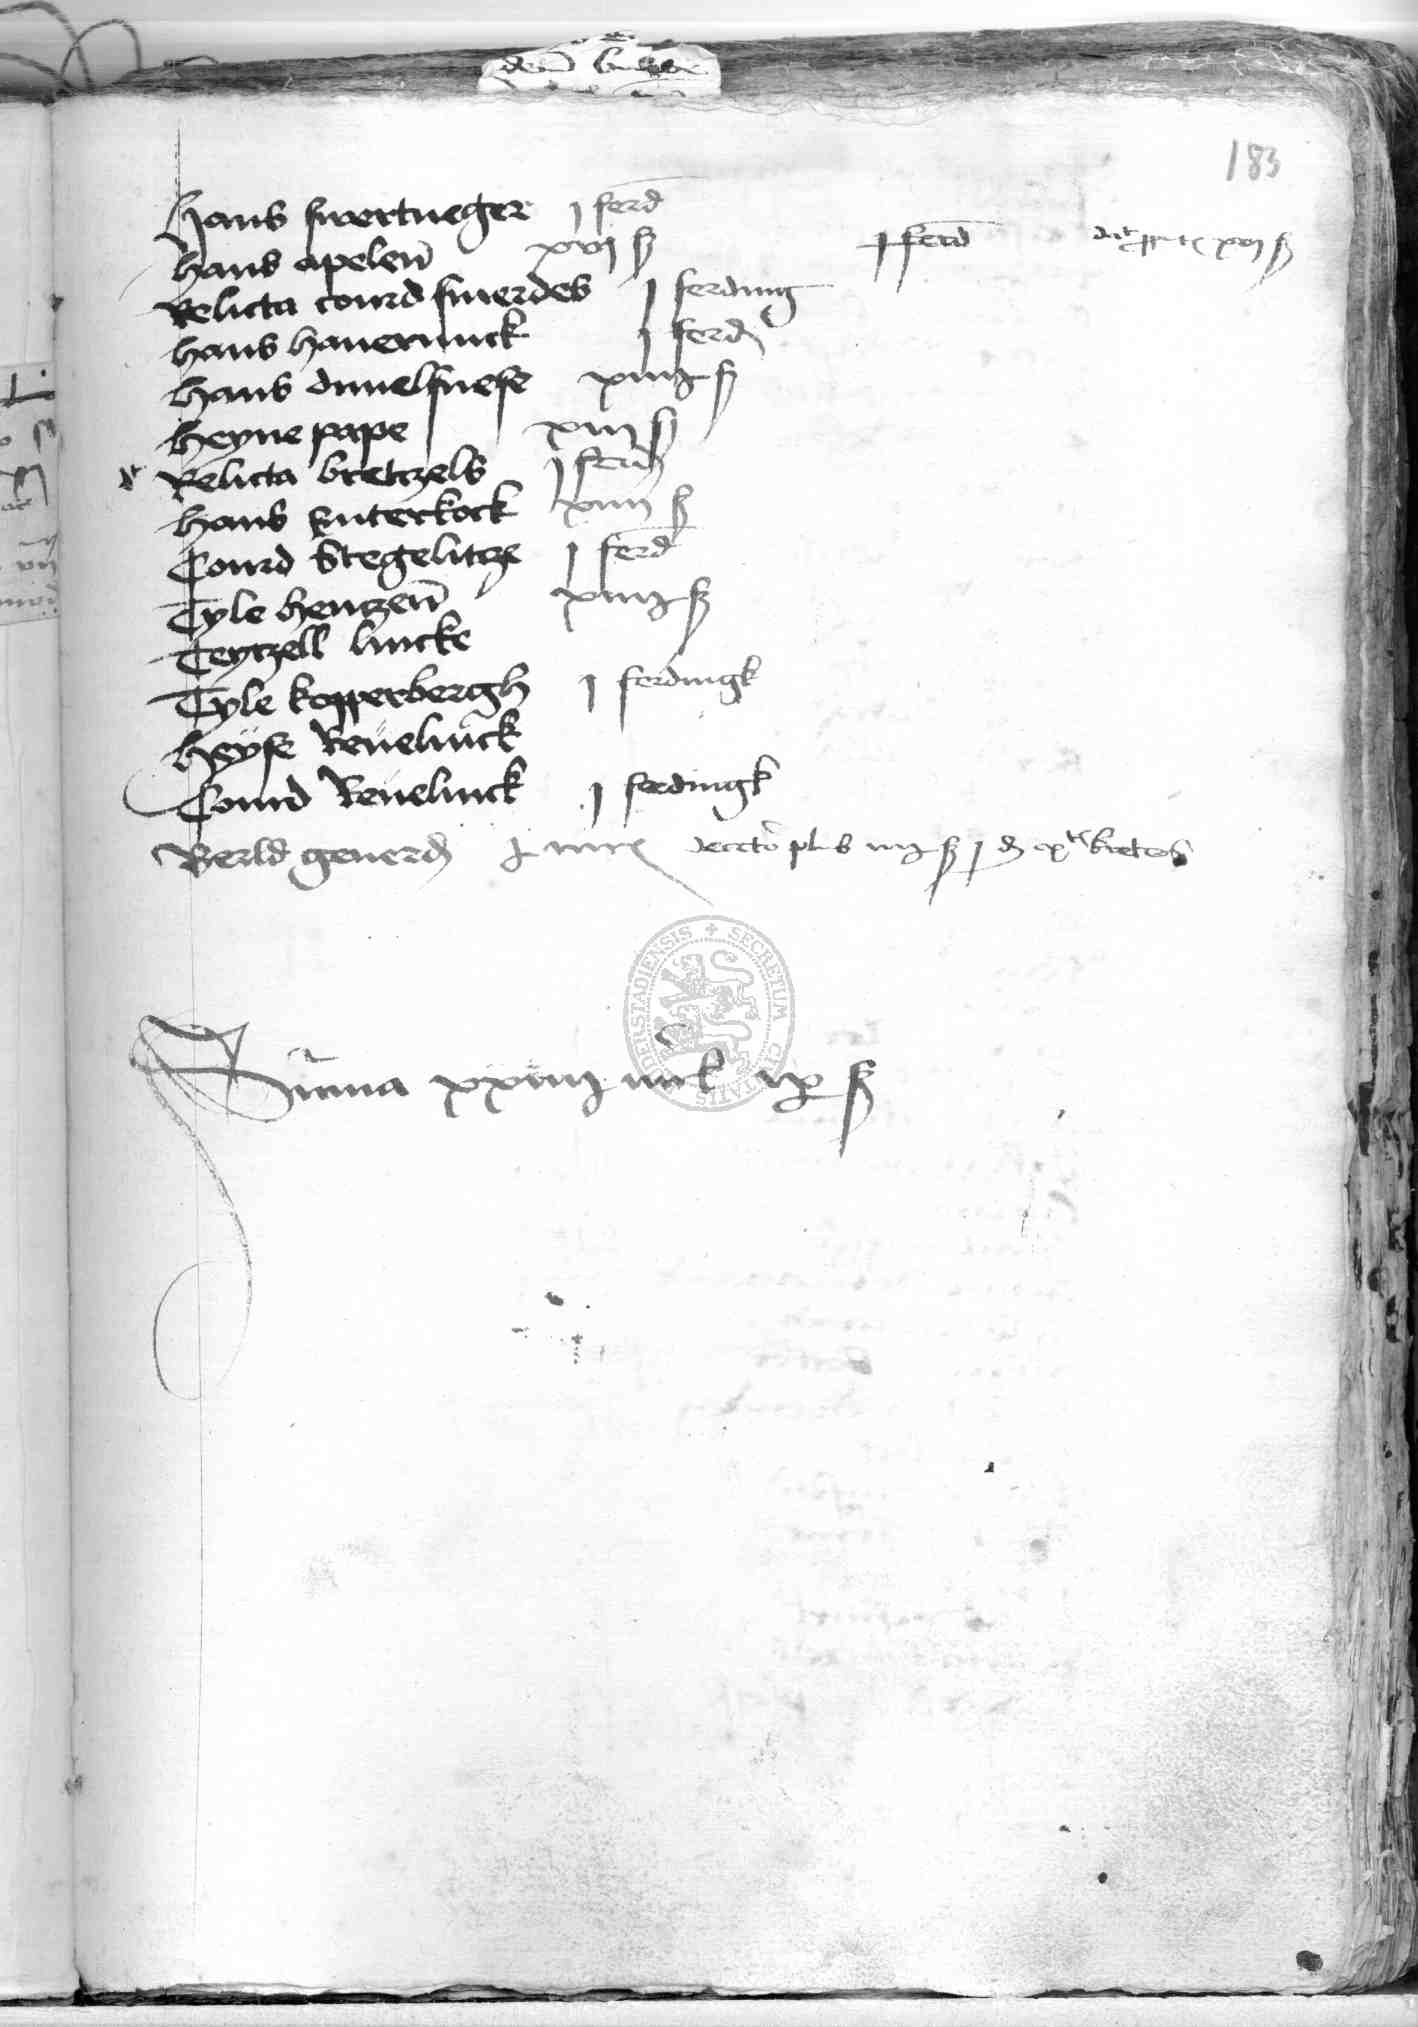 183
Hans swertueger j ferd
Hans apelen̄ xvj ß j ferd dt xvj ß
Relicta Courd swerdes j ferding
Hans Hauernick j ferd
Hans duuelsnese xiiij ß
Heyne pape xiij ß
dt Relicta bretzels j ferd
Hans Suterkock xiiij ß
Courd Stegelitze j ferd
Tyle Hentzen̄ xiiij ß
Teytzell lincke
Tyle kopperbergh j ferdingk
Heÿse Reuelinck
Courd Reuelinck j ferdingk
Berld geuerd plus iiij ß j d
Sum̄a xxiiij mrk ix ß
SECRETUM CIVITATIS